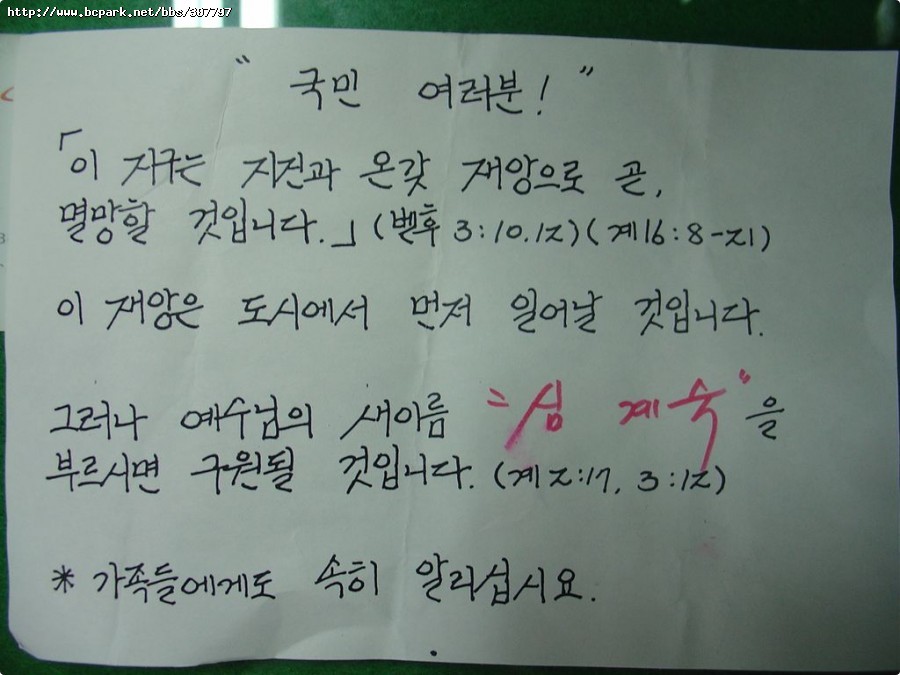 http://www.bcpark.net/bbs/387797
" 국민 여러분! "
「이 지구는 지진과 온갖 재앙으로 곧,
멸망할 것입니다.」(벧후 3:10.12)(계16:8-21)
이 재앙은 도시에서 먼저 일어날 것입니다.
그러나 예수님의 새이름 "심 계숙"을
부르시면 구원될 것입니다. (계2:17, 3:12)
* 가족들에게도 속히 알리십시요.